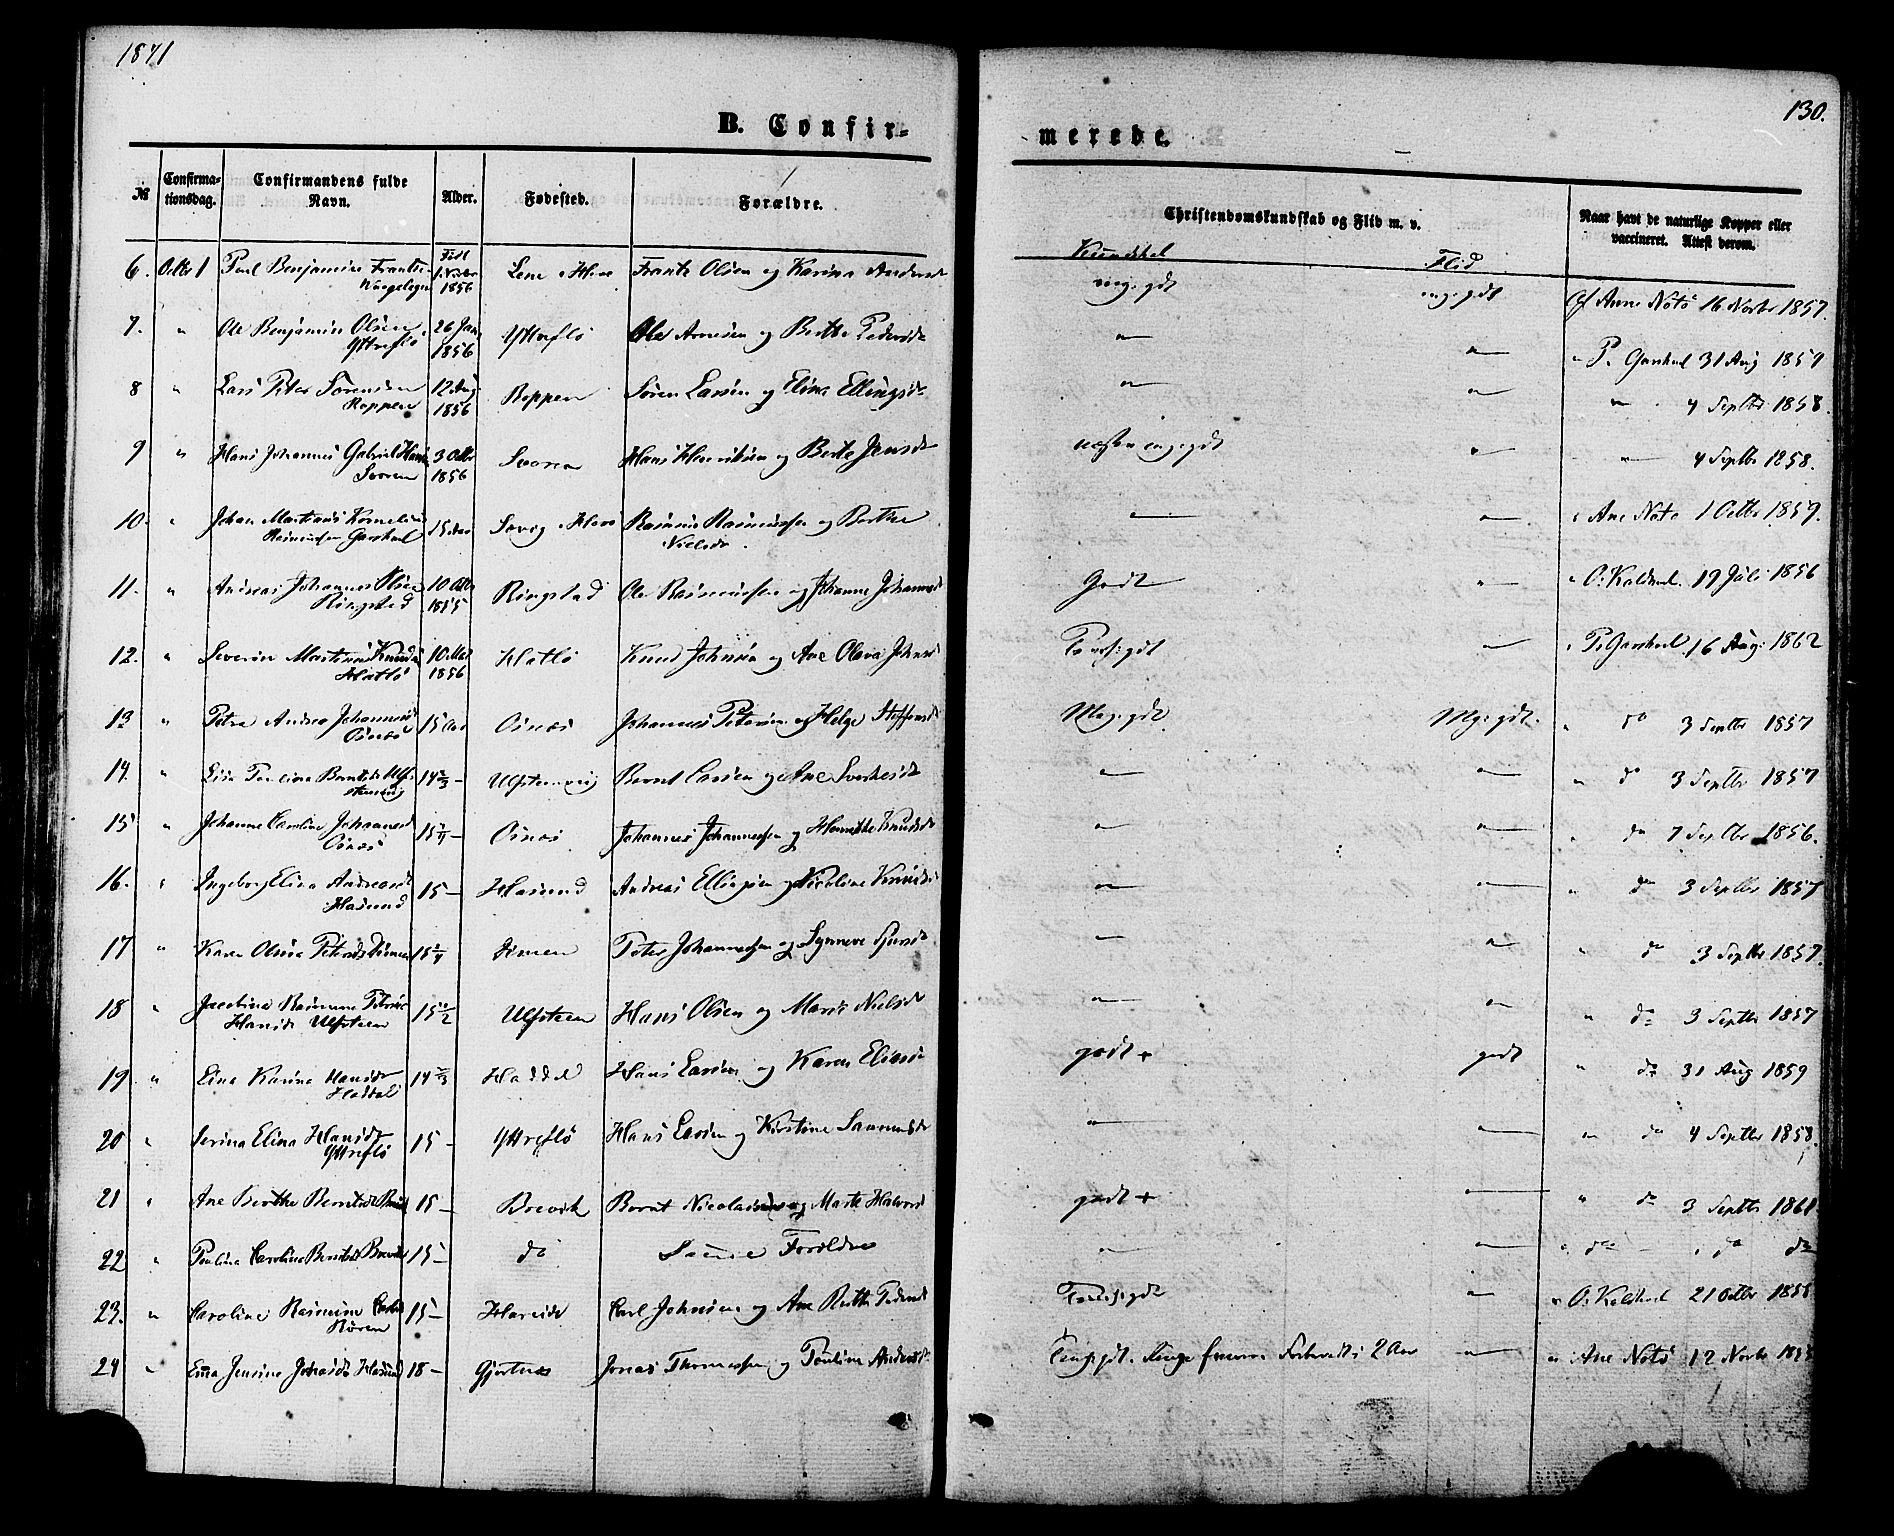 1871
130.
B. Confir-
merede.
№ Confirma-tionsdag. Confirmandens fulde Navn. Alder. Fødested. Forældre. Christendomskundskab og Flid m. v. Naar havt de naturlige Kopper eller vaccineret. Attest derom.
Kundskab Flid
6. Octbr 1 Paul Benjamin Frantsen Født 1856 Frants Olsen og Karina Andersd meg. gdt meg. gdt af Anne Notø 16 Novbr 1857.
7. " Ole Benjamin Olsen Yttreflø 26 Jan. 1856 Yttreflø Ole Arnesen og Berthe Pedersdr — — " P. Garshol 31 Aug 1859
8 " Lars Peter Sørensen Roppen 12 Aug 1856 Roppen Søren Larsen og Elina Ellingsd. — — " 4 Septbr 1858.
9 " Hans Johannes Gabriel Hansen 3 Octbr 1856 Hans Henriksen og Berte Jensd næsten meg. gdt " — 4 Septbr 1858.
10. " Johan Martinus Kornelius Rasmussen Garshol 15 Aar Rasmus Rasmussen og Berthe Nielsdr. — — " Ane Notø 1 Octbr 1857.
11. " Andreas Johannes Olsen Ringstad 10 Octbr 1855 Ringstad Ole Rasmussen og Johanne Johannesd Godt " " O. Kaldhol. 19 Juli 1856
12. " Severin Martinus Knudsen Hatlø 10 Mai 1856 Hatlø Knud Johnsen og Ane Olava Johnsd — " P. Garshol. 16 Aug: 1862
13 " Petra Andrea Johannesd Osnæs 15 Aar Osnæs Johannes Petersen og Helge Steffensd Meg. gdt. Meg. gdt. " do 3 Septbr 1857
14. " Paulina Berntsd. Ulfstenvig 14 2/3 — Ulfstenvig Bernt Larsen og Ane Sverkesd — — " do 3 Septbr 1857
15 " Johanne Caroline Johannesd Osnæs 15 1/4 — Osnæs Johannes Johannessen og Henrikke Knudsd — — " do 7 Septbr 1856.
16. " Ingeborg Elina Andreasd Hasund 15 — Hasund Andreas Ellingsen og Nicoline Knudsd — — " do 3 Septbr 1857
17 " Karen Olina Petersd Dimen 15 1/4 Dimen Peter Johannessen og Synneve Sjursd — — " do 3 Septbr 1857.
18 " Jacobina Rasmine Petrine Hansd. Ulfsteen 15 1/2 Ulfsteen Hans Olsen og Maria Nielsd — — " do 3 Septbr 1857
19 " Lina Karina Hansdr Haddal 14 2/3 Haddal Hans Larsen og Karen Eliasd godt + godt " do 31 Aug 1859
20 " Serina Elina Hansdr Yttreflø 15 — Yttreflø Hans Larsen og Kirstine Samuelsdr — — " do 4 Septbr 1858.
21 " Ane Berthe Berntsd 15 — Brevik Bernt Nicolaisen og Marte Halvorsd godt + — " do 3 Septbr 1861
22 " Paulina Carolina Berntsd. Brevik 15 — do Samme Forældre — — " do — " do do
23. " Caroline Rasmine 15 — Hareide Carl Johnsen og Ane Berthe Pedersd — " O. Kaldhol 21 Octbr 1855
24 " Jensine Jonasdr Hasund 18 — Gjertnes Jonas Thomassen og Pauline Andersd. 2 Aar — " Ane Notø 12 Novbr